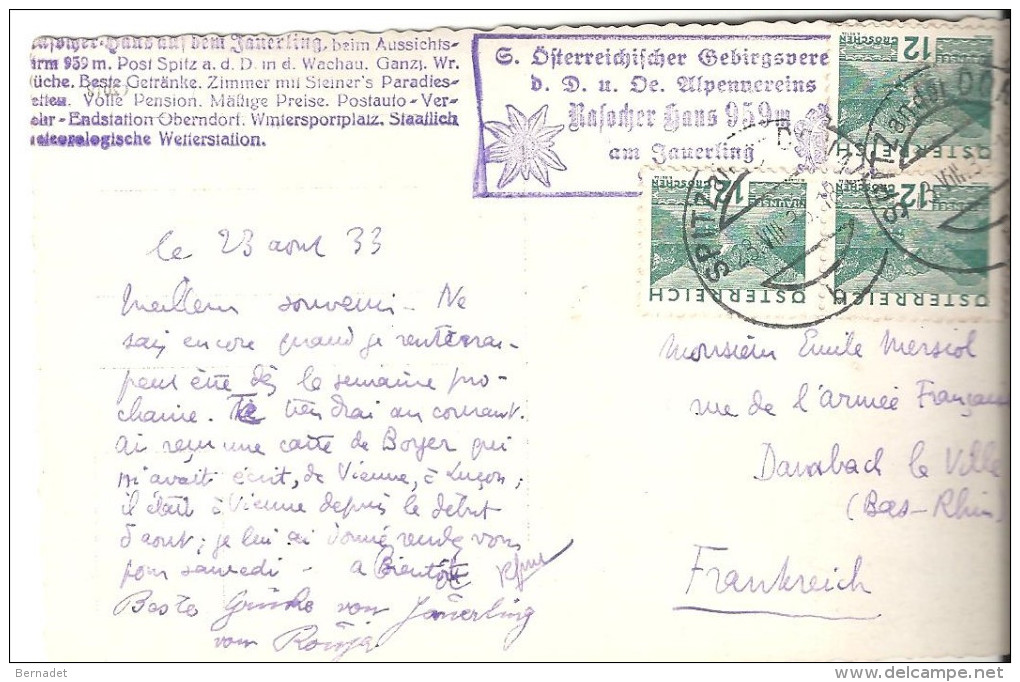 Rasocher-Haus auf dem Jauerling, beim Aussichts-
turm 959 m. Post Spitz a. d. D. in d. Wachau. Ganzj. Wr.
üche. Beste Getränke. Zimmer mit Steiner's Paradies-
etten. Volle Pension. Mäßige Preise. Postauto - Ver-
ehr - Endstation Oberndorf. Wintersportplatz. Staatlich
meteorologische Wetterstation.
S. Österreichischer Gebirgsvere
d. D. u. Oe. Alpenvereins
Rasocher Haus 959m
am Jauerling
12 GROSCHEN
ÖSTERREICH
12 GROSCHEN
ÖSTERREICH
12 GROSCHEN
ÖSTERREICH
SPITZ an der DONAU
23.VIII.
le 23 aout 33
Meilleur souvenir - Ne
sais encore quand je rentrerai -
peut être dès la semaine pro-
chaine. Te tiendrai au courant.
ai reçu une carte de Boyer qui
m'avait écrit, de Vienne, à Luçon;
il était à Vienne depuis le début
d'aout; je lui ai donné rendez vous
pour samedi - a Bientôt
Beste Grüsse von Jauerling
vom
Monsieur Emile Mersiol
rue de l'armée Française
Dambach la Ville
(Bas-Rhin
Frankreich
Bernadet
www.delcampe.net